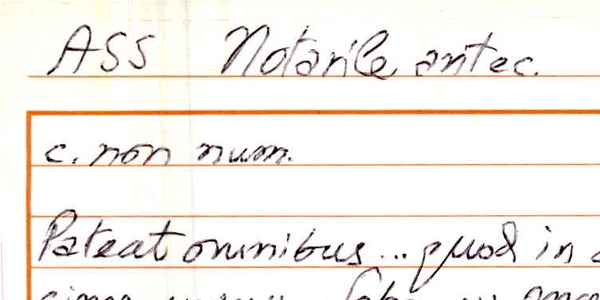 ASS Notarile antec.
c. non num.
Pateat omnibus... quod in